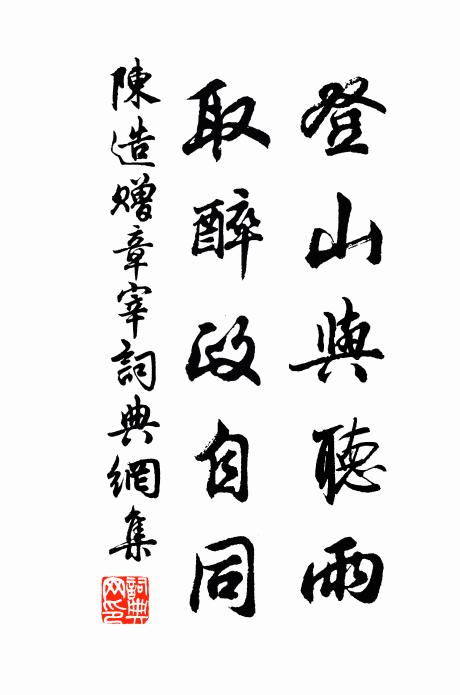 登山與聽雨
取醉政自同
陳造贈章宰詞典網集
詞典網印